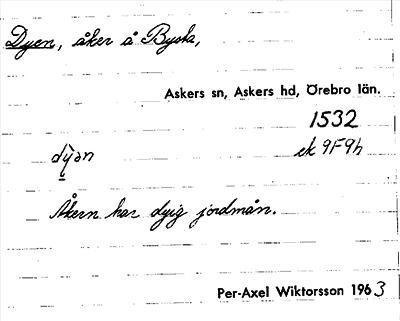 Dyen, åker å Byska,
Askers sn, Askers hd, Örebro län.
1532
ek 9F9h
dỳən
Åkern har dyig jordmån.
Per-Axel Wiktorsson 1963